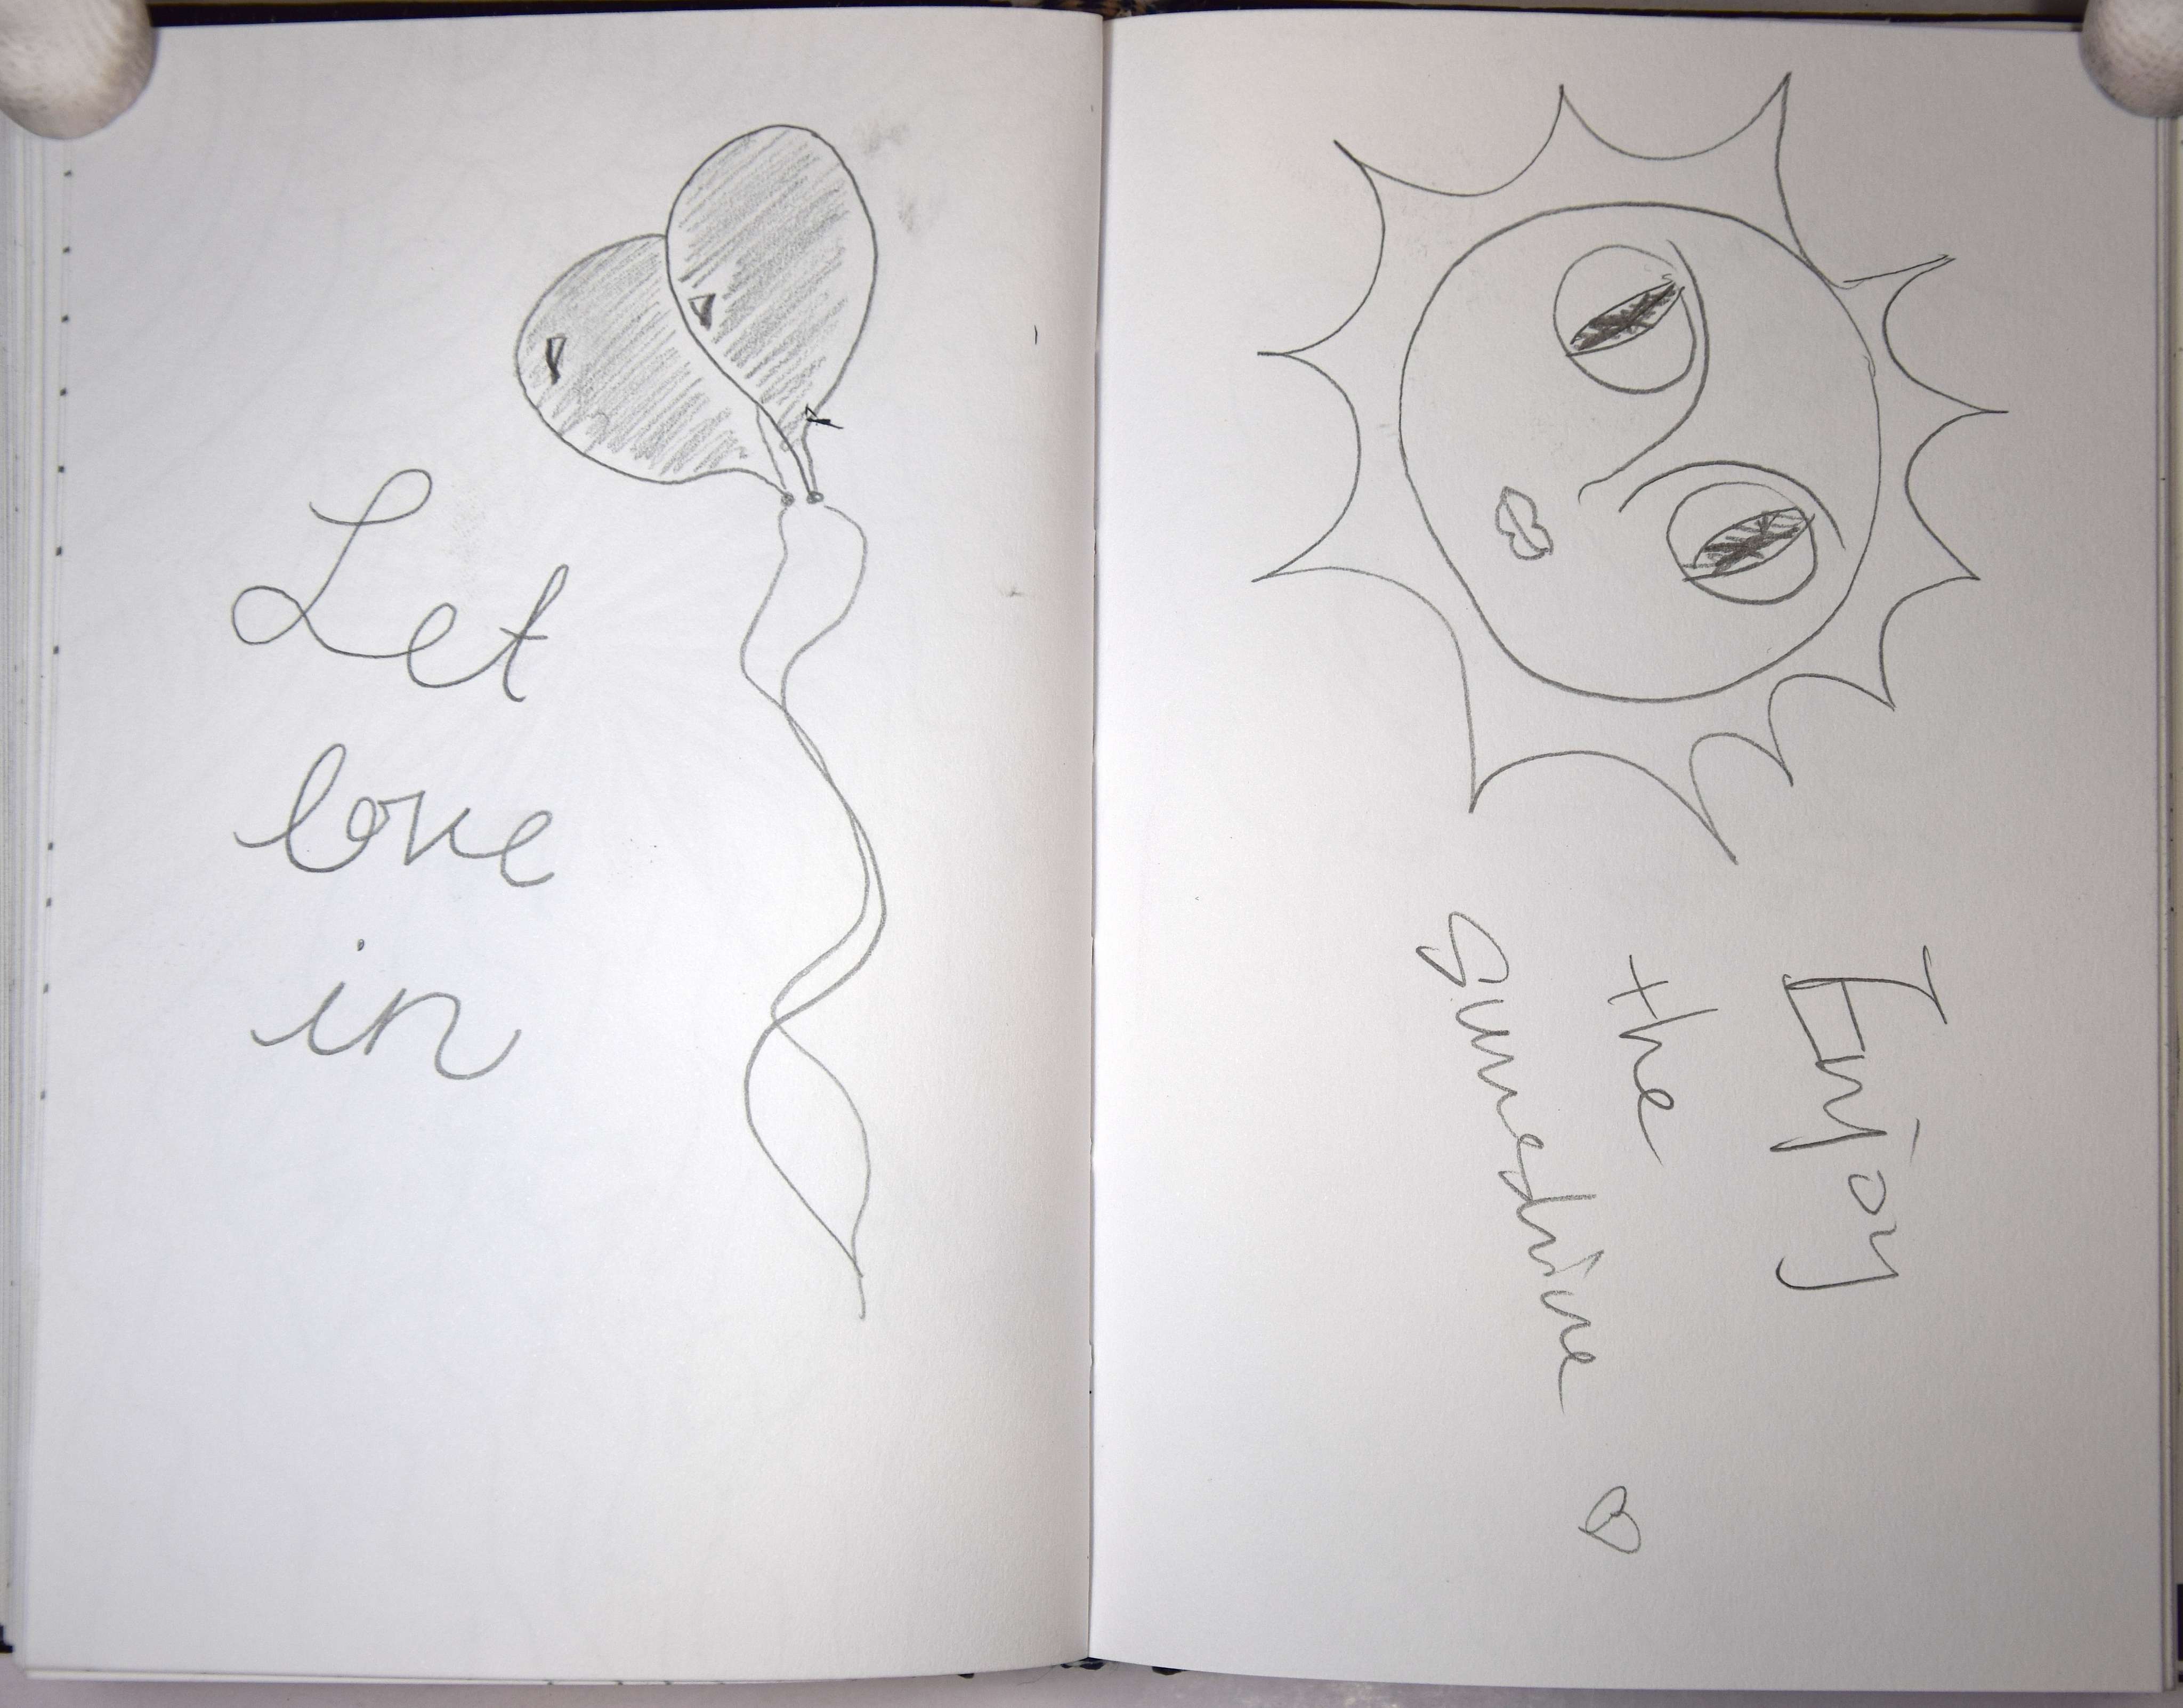 Let
love
in
Enjoy
the
Sunshine ♡